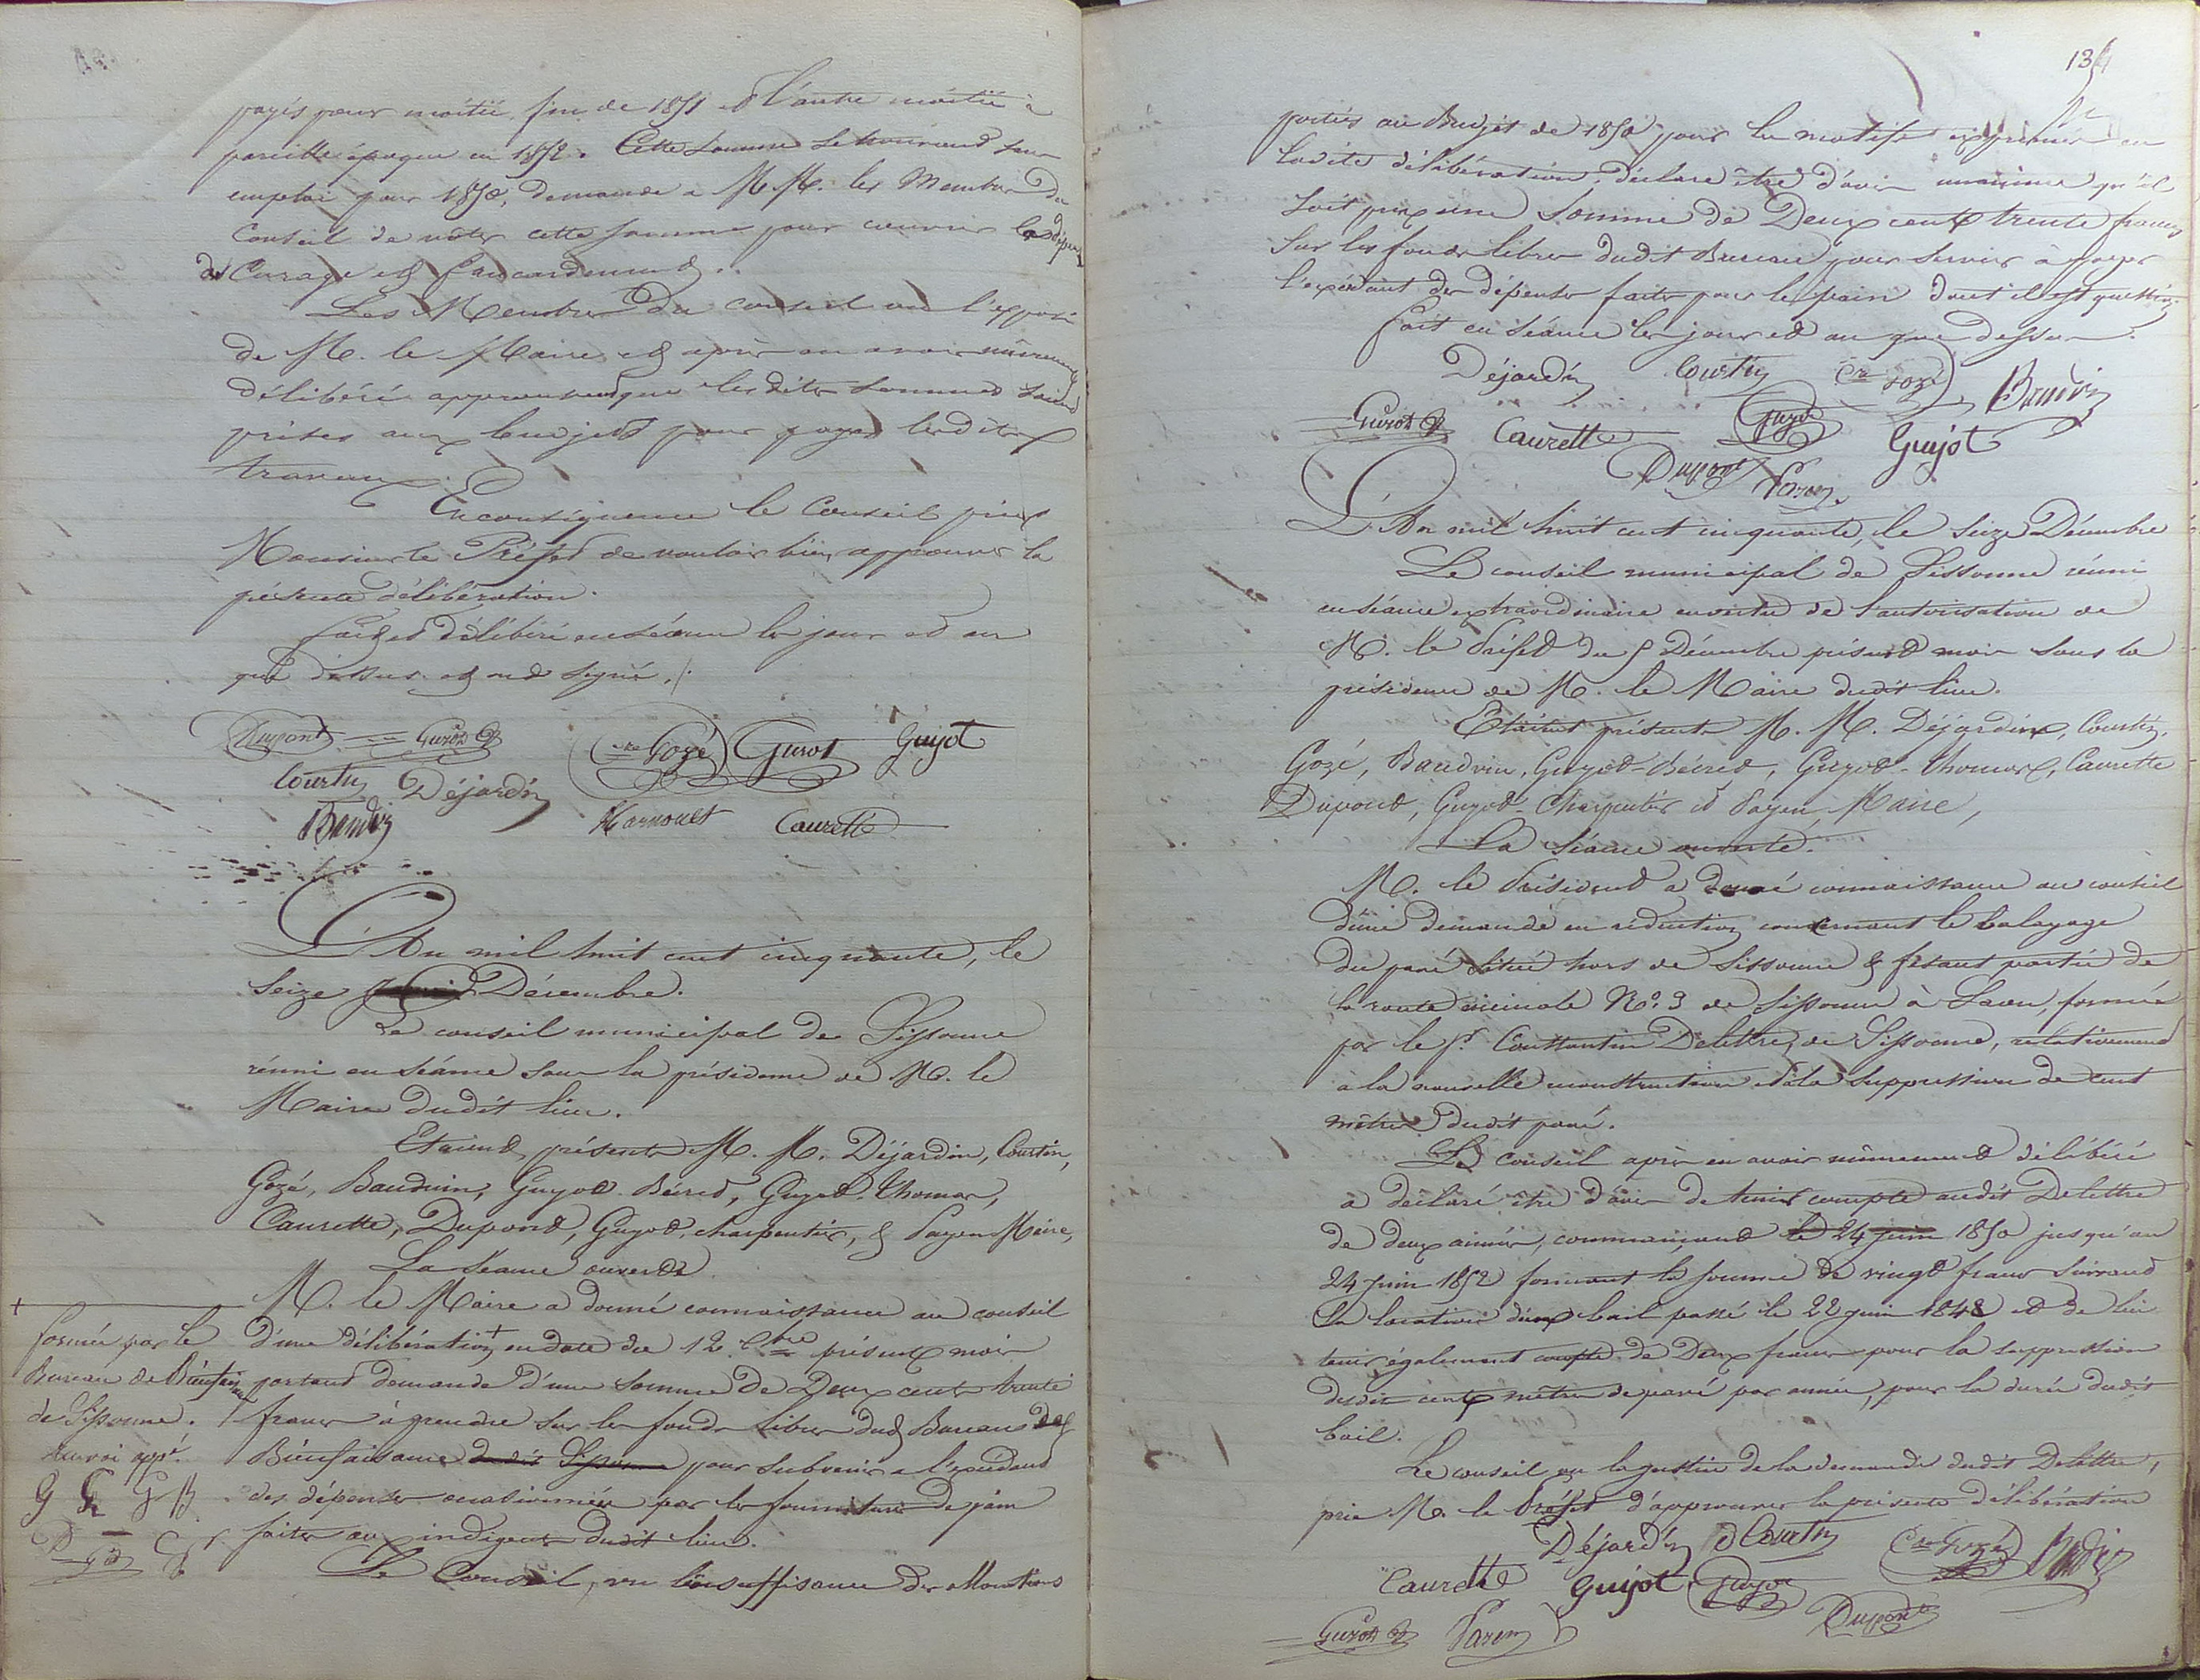 payés pour moitié fin de 1851 et l'autre moitié à
pareille époque en 1852. Cette somme se trouvant sans
emploi pour 1850, demande à M.M. les Membres du
Conseil de voter cette somme pour couvrir les dépenses
de Curage et faucardement.
Les Membres du conseil ont l'exposé
de M. le Maire et après en avoir mûrement
délibéré approuvent que lesdites sommes soient
prises aux budjets pour payer lesdits
travaux.
En conséquence le Conseil prie
Monsieur le Préfet de vouloir bien approuver la
présente délibération.
Fait et délibéré en séance les jour et an
que dessus et ont signé ./.
Dupont Guyot B Cre Gozé Guyot Guyot
Courtin Déjardin
Baudvin Harnouet Caurette
L'An mil huit cent cinquante, le
Seize Décembre.
Le conseil municipal de Sissonne
réuni en séance sous la présidence de M. le
Maire dudit lieu.
Etaient présents M. M. Déjardin, Courtin,
Gozé, Bauduin, Guyot-Bécret, Guyot-Thomas,
Caurette, Dupont, Guyot, charpentier, & Payen Maire,
La Séance ouverte
M. le Maire a donné connaissance au conseil
d'une délibération + en date du 12 Xbre présent mois
portant demande d'une somme de Deux cents trente
francs à prendre sur les fonds libres dud. Bureau de
Bienfaisance dudit Sissonne pour subvenir à l'excédant
des dépenses occasionnées par les fournitures de pain
faites aux indigents dudit lieu.
Le Conseil, vu l'insuffisance des allocations
+
formée par le
Bureau de Bienfaisance
de Sissonne.
Renvoi appé.
G G G B
134
portées au Budjet de 1850 pour les motifs exprimés en
ladite délibération, déclare être d'avis unanime qu'il
soit pris une somme de Deux cents trente francs
sur les fonds libres dudit Bureau pour servir à payer
l'excédant des dépenses faites pour le pain dont il est question.
Fait en séance les jour et an que dessus.
Déjardin Courtin Cre Gozé Baudvin
Guyot B Caurette Guyot Guyot
Dupont Payen
L'An mil huit cent cinquante, le Seize Décembre
Le conseil municipal de Sissonne réuni
en séance extraordinaire en vertu de l'autorisation de
M. le Préfet du 5 Décembre présent mois sous la
présidence de M. le Maire dudit lieu.
Etaient présents M. M. Déjardin, Courtin,
Gozé, Baudvin, Guyot-Bécret, Guyot-Thomas, Caurette
Dupont, Guyot Charpentier et Payen, Maire,
La Séance ouverte.
M. le Président a donné connaissance au conseil
d'une demande en réduction concernant le balayage
du pavé situé hors de Sissonne & fesant partie de
la route vicinale No. 3 de Sissonne à Laon, formée
par le Sr. Constantin Delettre, de Sissonne, relativement
à la nouvelle construction et à la suppression de cent
mètres dudit pavé.
Le conseil après en avoir mûrement délibéré
a déclaré être d'avis de tenir compte audit Delettre
de deux années, commençant le 24 juin 1850 jusqu'au
24 juin 1852 formant la somme de vingt francs suivant
la location d'un bail passé le 22 juin 1848 et de lui
tenir également compte de Deux francs pour la suppression
desdits cents mètres de pavé par année, pour la durée dudit
bail.
Le conseil, vu la justice de la demande dudit Delettre,
prie M. le Préfet d'approuver la présente délibération
Déjardin Courtin Cre Gozé Baudvin
Caurette Guyot Guyot
Guyot B Payen Dupont